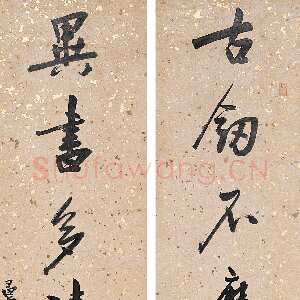 古釼不
異書多
Shufawang.CN